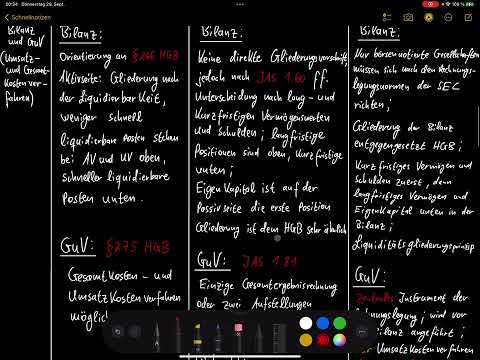 20:34 Donnerstag 29. Sept.
100 %
Schnellnotizen
Bilanz
und GuV
(Umsatz-
und Gesamt-
Kosten ver-
fahren)
Bilanz:
Orientierung an § 266 HGB
Aktivseite: Gliederung nach
der Liquidierbar Keit,
weniger schnell
liquidierbare Posten stehen
bei AV und UV oben,
schneller liquidierbare
Posten unten.
GuV: § 275 HGB
Gesamt Kosten - und
Umsatz Kosten verfahren
möglich
Bilanz:
Keine direkte Gliederungsvorschrift,
jedoch nach IAS 1.60 ff.
Unterscheidung nach lang - und
Kurzfristigen Vermögenswerten
und Schulden; langfristige
Positionen sind oben, Kurzfristige
unten;
Eigen Kapital ist auf der
Passivseite die erste Position
Gliederung ist dem HGB sehr ähnlich
GuV: IAS 1.81
Einzige Gesamtergebnisrechnung
oder zwei Aufstellungen
Bilanz:
Nur börsennotierte Gesellschaften
müssen sich nach den Rechnungs-
legungsnormen der SEC
richten;
Gliederung der Bilanz
entgegengesetzt HGB;
Kurzfristiges Vermögen und
Schulden zuerst, dann
langfristiges Vermögen und
EigenKapital unten in der
Bilanz;
Liquiditätsgliederungsprinzip
GuV:
Zentrales Instrument der
wird vor
Bilanz angeführt;
Umsatz Kosten verfahren